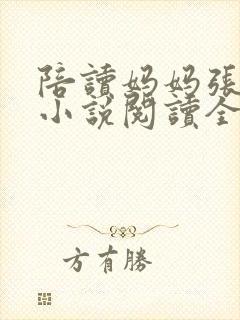 陪讀妈妈張
小說閱讀全
方有勝